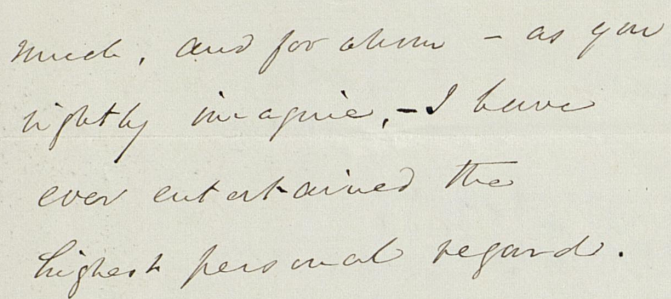 much, and for whom - as you
rightly imagine, - I have
ever entertained the
highest personal regard.